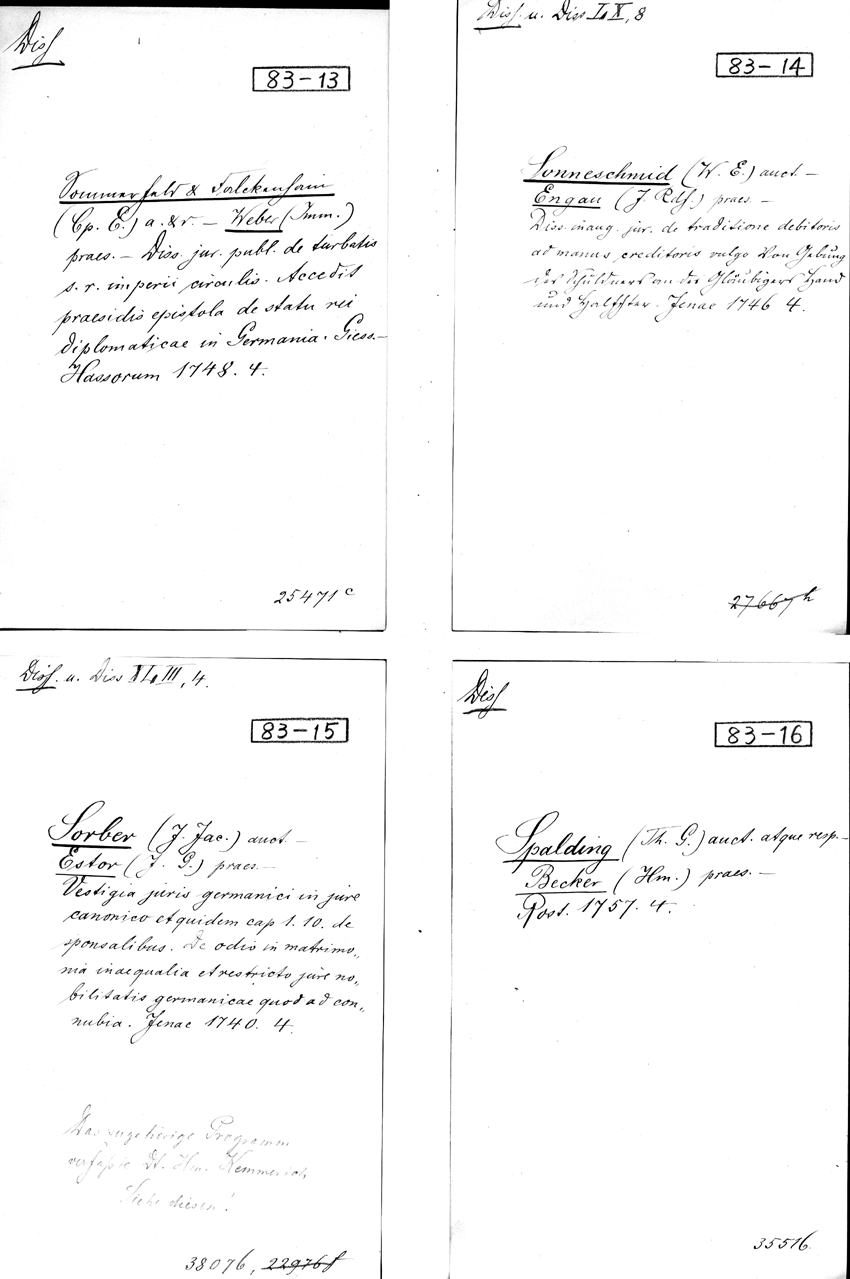 Diss
83-13
Sommerfeld & Falckenhain
(Cp. E.) a. & r. — Weber (Imm.)
praes. — Diss. jur. publ. de turbatis
s. r. imperii circulis. Accedit
praesidis epistola de statu rei
diplomaticae in Germania. Giess.—
Hassorum 1748. 4.
25471 c
Diss. u. Diss LX, 8
83-14
Sonneschmid (W. E.) auct. —
Engau (J. Rdf.) praes. —
Diss. inaug. jur. de traditione debitoris
ad manus creditoris vulgo Von Gebung
des Schuldners an des Gläubigers Hand
und Halfter. Jenae 1746 4.
27667 h
Diss. u. Diss XLIII, 4.
83-15
Sorber (J. Jac.) auct. —
Estor (J. G.) praes. —
Vestigia juris germanici in jure
canonico et quidem cap 1. 10. de
sponsalibus. De odio in matrimo„
nia inaequalia et restricto jure no„
bilitatis germanicae quod ad con„
nubia. Jenae 1740. 4.
Das zugehörige Programm
verfaßte Dt. Hm. Kemmerich
Siehe diesen!
38076, 22976 f
Diss
83-16
Spalding (Th. G.) auct. atque resp. —
Becker (Hm.) praes. —
Rost. 1757. 4.
35516.